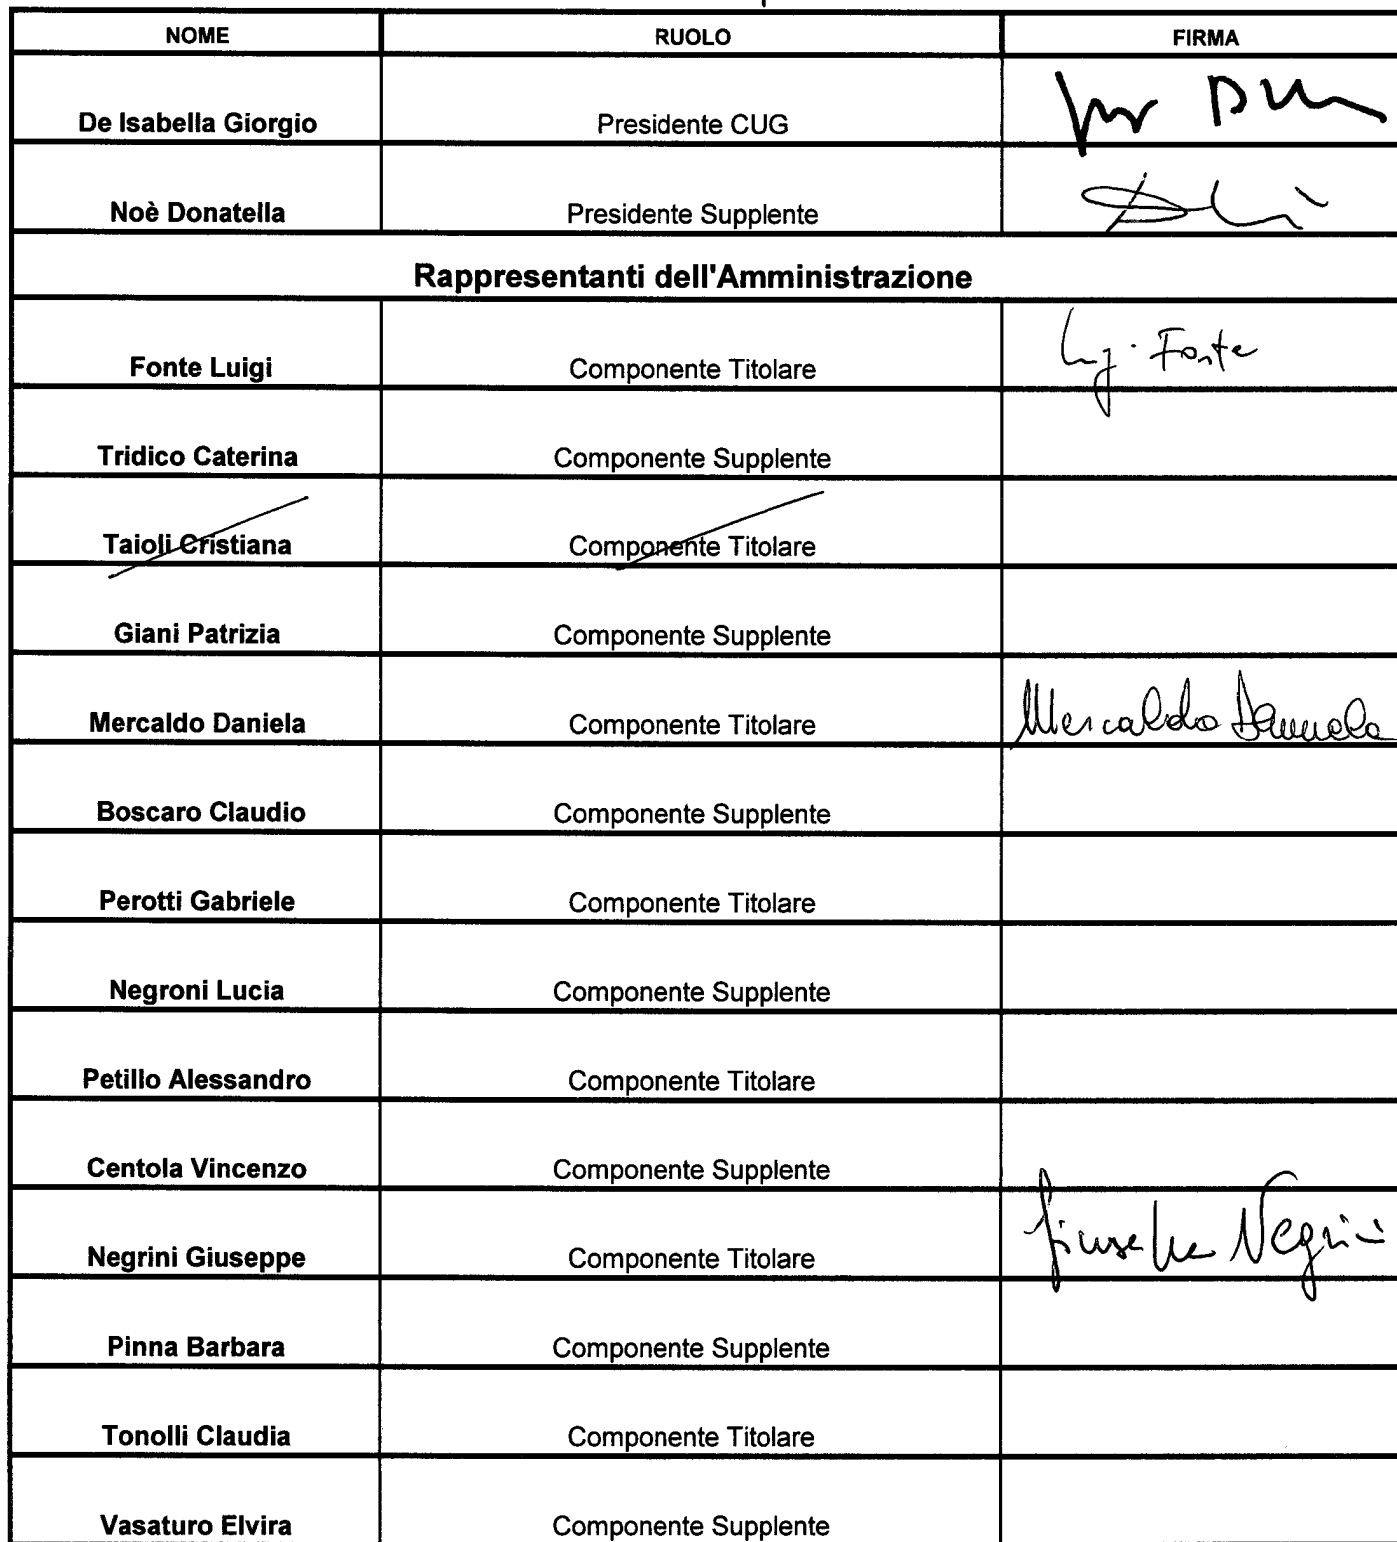 NOME RUOLO FIRMA
De Isabella Giorgio Presidente CUG
Noè Donatella Presidente Supplente
Rappresentanti dell'Amministrazione
Fonte Luigi Componente Titolare Fonte
Tridico Caterina Componente Supplente
Taioli Cristiana Componente Titolare
Giani Patrizia Componente Supplente
Mercaldo Daniela Componente Titolare Mercaldo Daniela
Boscaro Claudio Componente Supplente
Perotti Gabriele Componente Titolare
Negroni Lucia Componente Supplente
Petillo Alessandro Componente Titolare
Centola Vincenzo Componente Supplente
Negrini Giuseppe Componente Titolare Giuseppe Negrini
Pinna Barbara Componente Supplente
Tonolli Claudia Componente Titolare
Vasaturo Elvira Componente Supplente